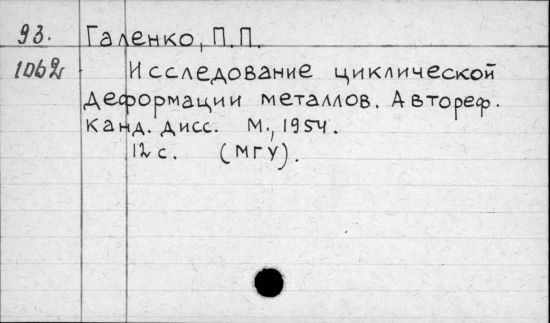 93. Галенко, П.П.
1062 Исследование циклической
деформации металлов. Автореф.
канд. дисс. М., 1954.
12 с. (МГУ).